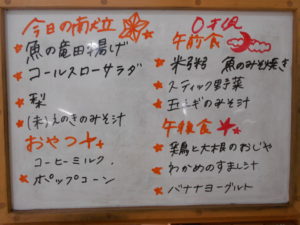 今日の献立
魚の竜田揚げ
コールスローサラダ
梨
(未)えのきのみそ汁
おやつ
コーヒーミルク.
ポップコーン
0才児
午前食
米粥 魚のみそ焼き
スティック野菜
玉ネギのみそ汁
午後食
鶏と大根のおじや
わかめのすまし汁
バナナヨーグルト